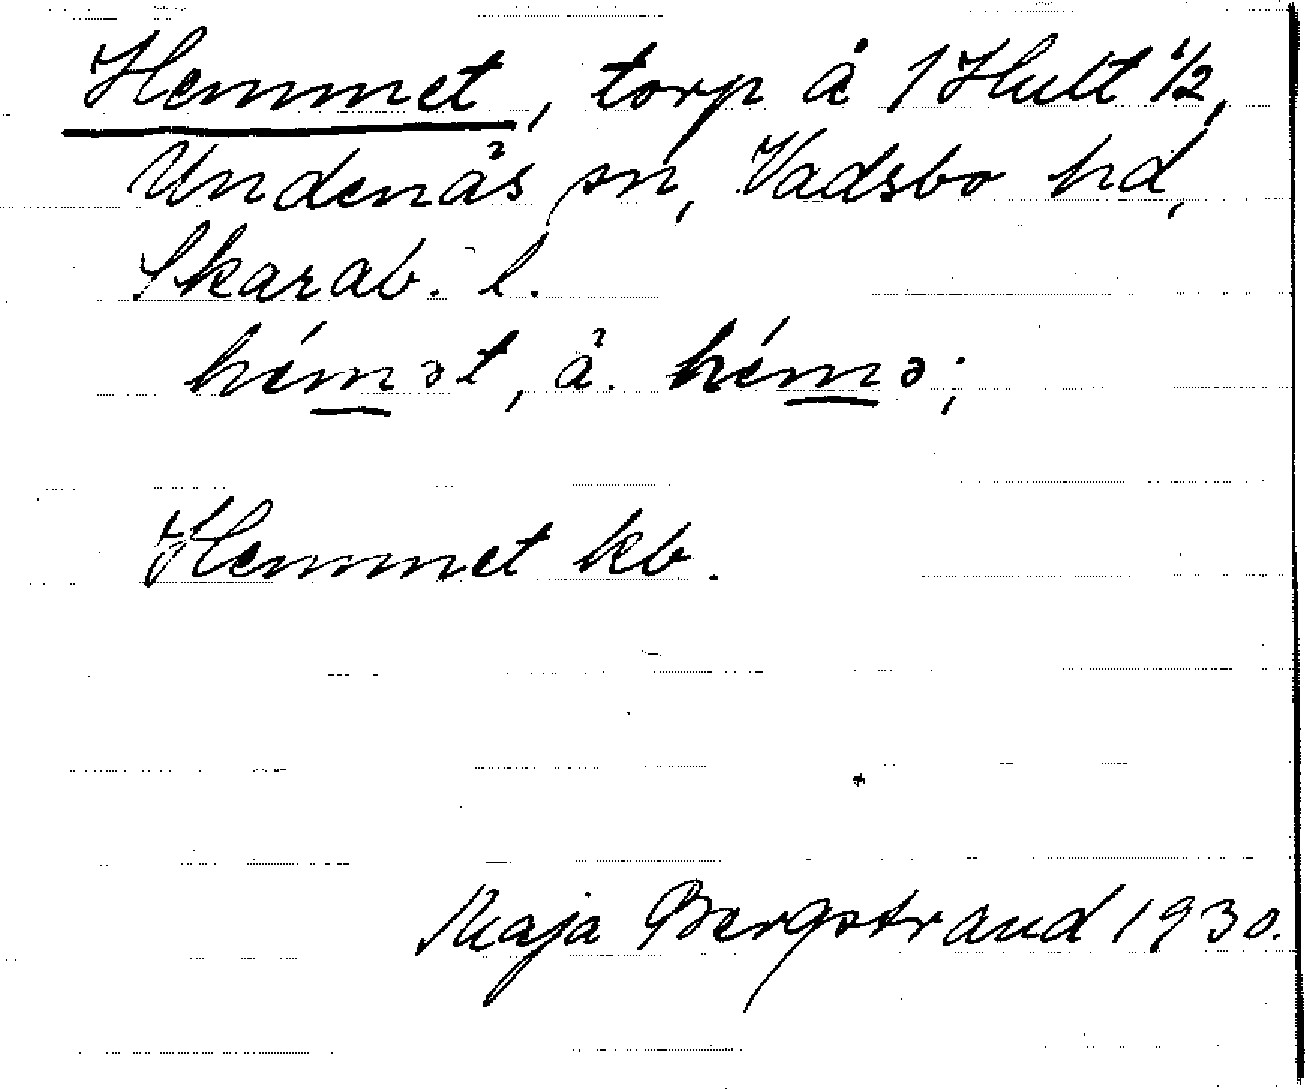 Hemmet, torp å 1 Hult 1/2,
Undenäs sn, Vadsbo hd,
Skarab. l.
hémət, å. hémə;
Hemmet kb.
Maja Bergstrand 1930.